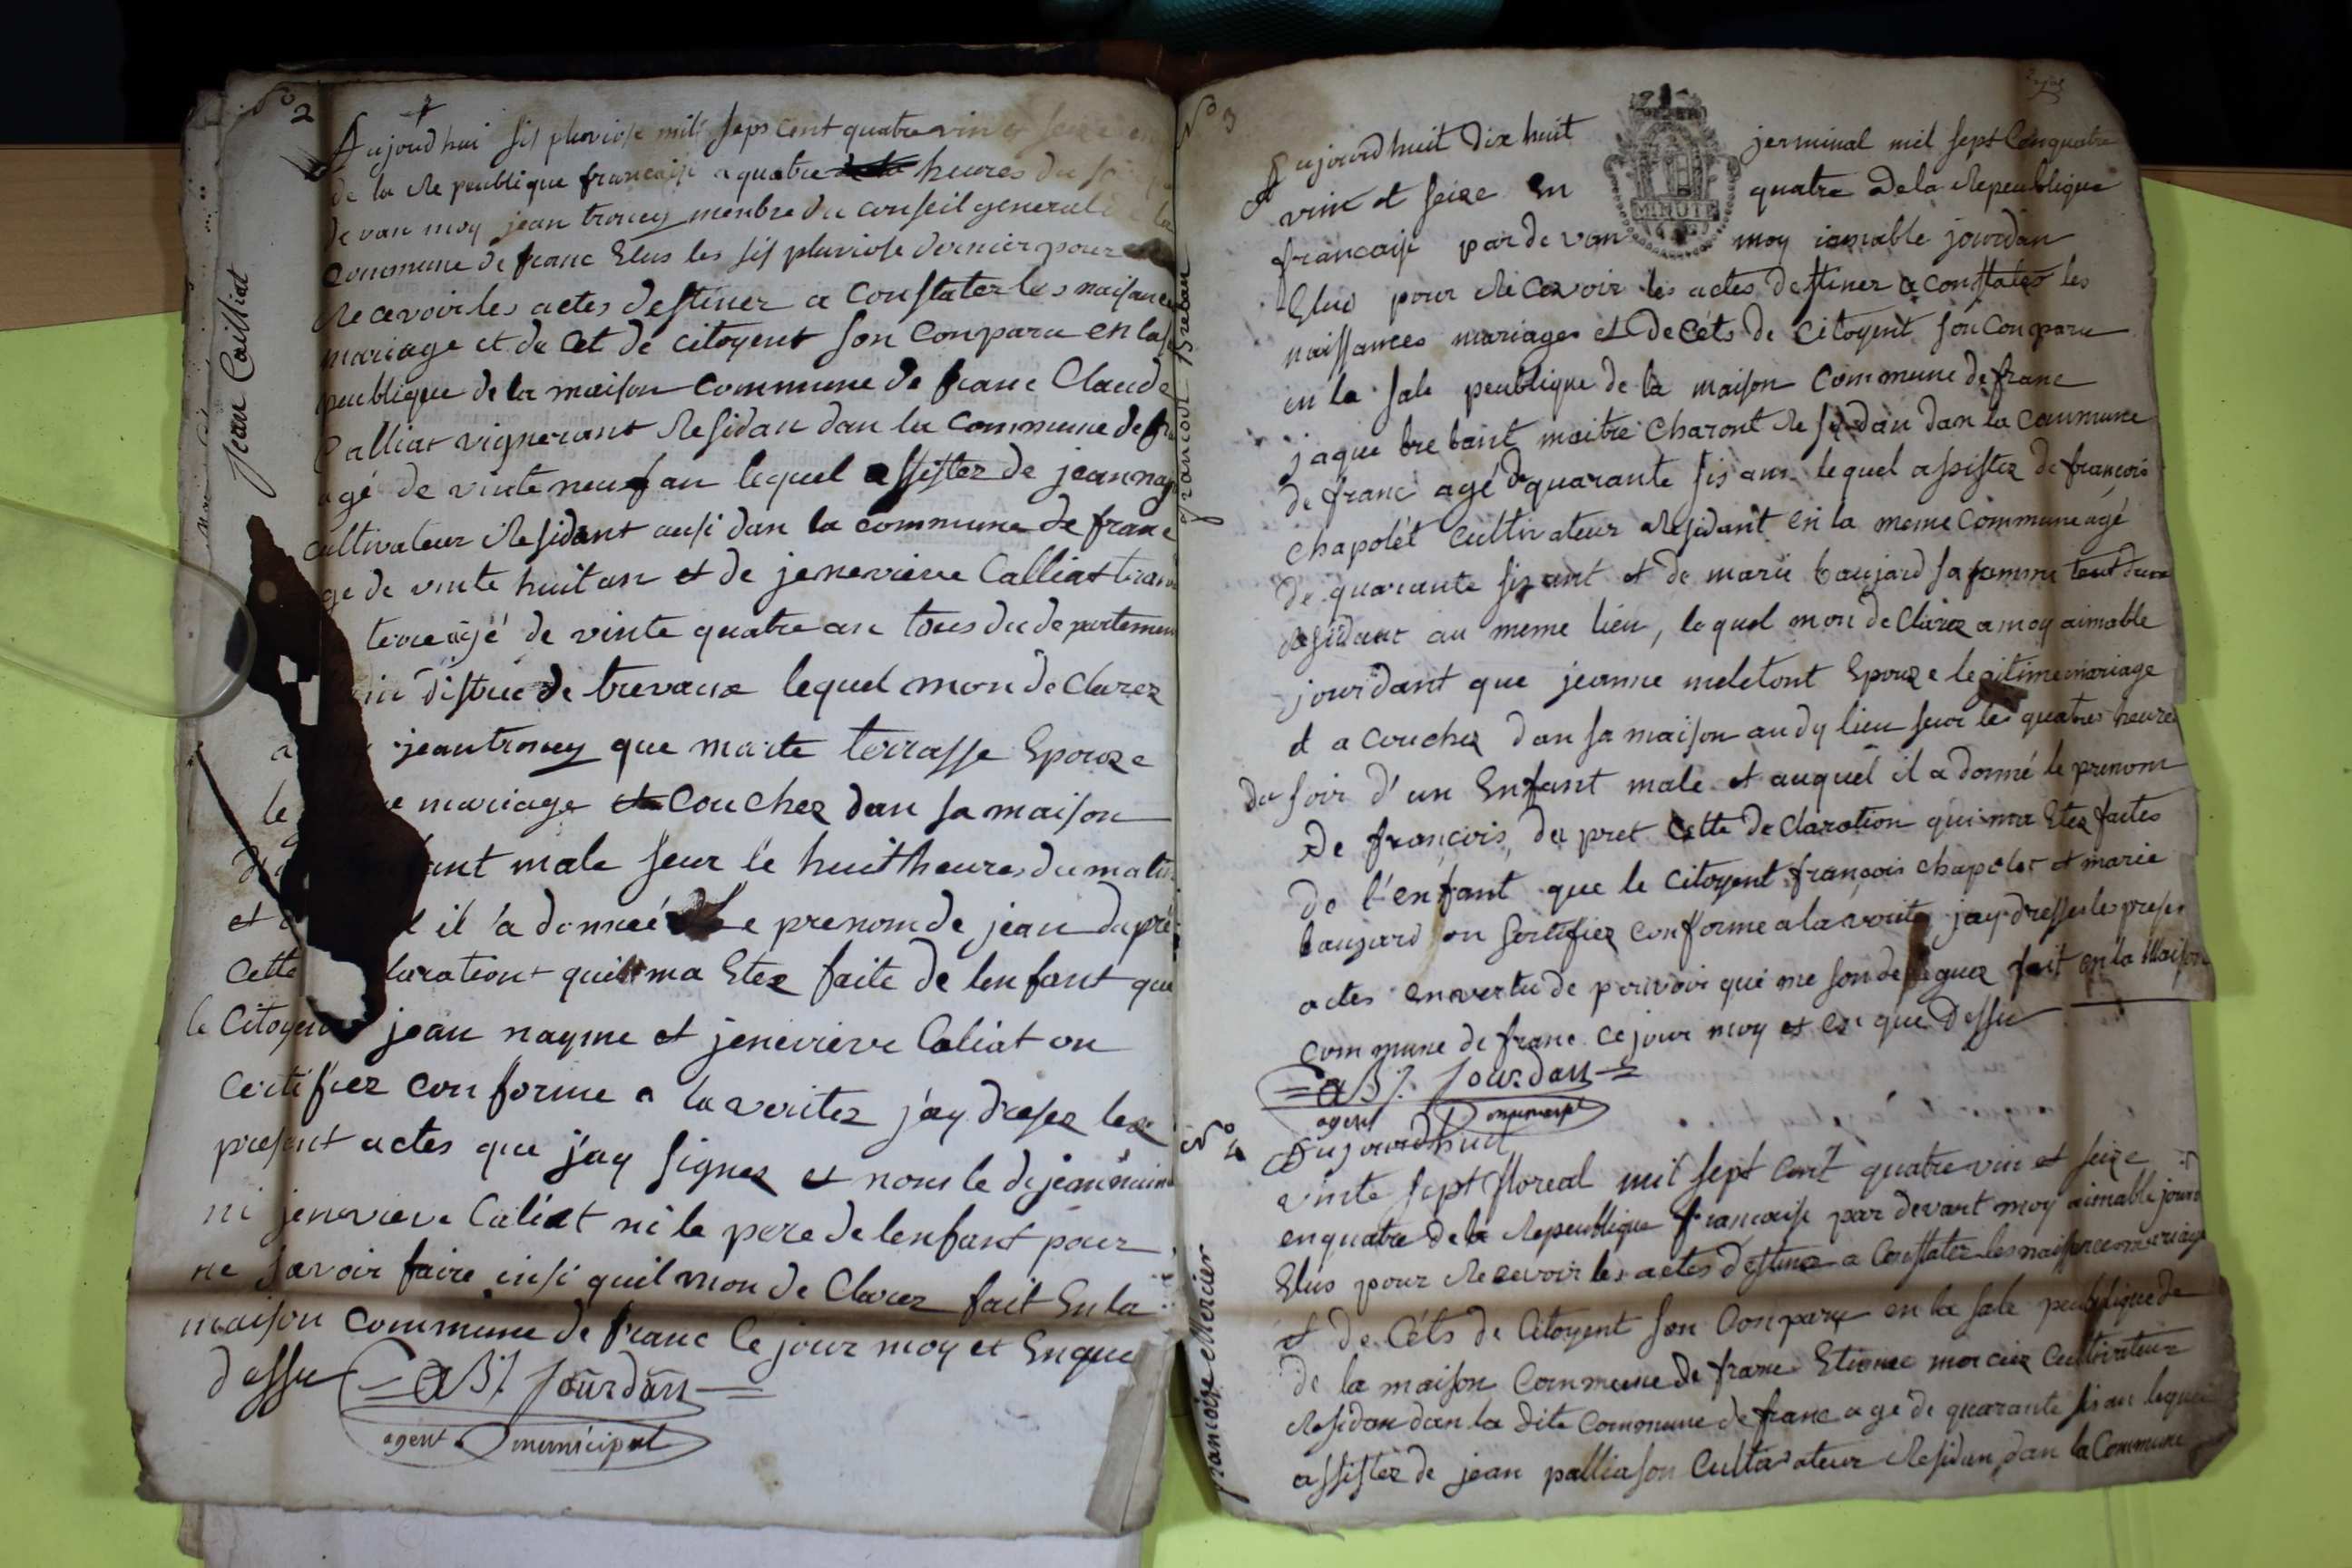 No 2
Jean Calliat
Aujourdhui sis pluviose mil seps cent quatre vin et seize en
de la Republique francaise a quatre heures du soir
de van moy jean troncy menbre du conseil general de la
Commune de franc Elus les sis pluviose dernier pour
Recevoir les actes destiner a Constater les naisances
mariage et de Cet de citoyent son Conparu en la
peublique de la maison Commune de franc Claude
Calliat vigneront Residan dan la Commune de
agé de vinte neuf an lequel assister de jean
cultivateur Residant ausi dan la commune de franc
ge de vinte huit an et de jenevieve Calliat
agé de vinte quatre an tous du de partement
distric de trevoux lequel mon de Clarez
a jean troncy que marte terrasse Epouze
le mariage Couchez dan sa maison
ant male seur le huit heures du matin
et il a donneé le prenom de jean dupré
Cette larationt qui ma Etez faite de lenfant que
le Citoyen jean nayme et jenevieve Caliat on
Certifiez con forme a la veritez j'ay dresez les
present actes que j'ay signez et nom le di jean
ni jenevieve Caliat ni le pere de lenfant pour
ne savoir faire insi quil mon de Clarez fait En la
maison Commune de franc le jour moy et En que
dessu = aB. Jourdan =
agent municipal
No 3
francois Breban
Aujourdhuit Dix huit jerminal mil sept Conquatre
vint et seize En quatre De la Republique
francaise par de van moy iamable jourdan
Elus pour Recevoir les actes destiner a constater les
naissances mariages et Decéts de Citoyent son Conparu
en la sale peublique de la maison Commune de franc
jaque bre bant maitre Charont Residan dan la Commune
de franc agé de quarante sis ans lequel assistez de francois
Chapolét Cultivateur Residant en la meme Commune agé
de quarante sis ant et de marie baujard sa famme tout deux
Residant au meme lieu, lequel mon de Clarez a moy aimable
jourdant que jeanne meletont Epouze legitime mariage
et a Couchez dan sa maison au dy lieu seur les quatres heures
du soir d'un Enfant male et auquel il a donné le prenom
De francois, de pret Cette de Claration qui ma Etez faites
de l'enfant que le Citoyent francois Chapolet et marie
baujard on Sertifiez conforme a la veritez jay dressez les presen
actes en vertu de pouvoir qui me son de leguez fait en la Maison
Commune de franc ce jour moy et en que Dessu
= aB. Jourdan =
agent municipal
No 4
francoise Mercier
Aujourdhuit
vinte sept floreal mil sept cent quatre vin et seize
en quatre de la Republique francaise par devant moy aimable jourd
Elus pour Recevoir les actes destinez a Constater les naissances mariage
et de Céts de Citoyent son Conparu en la sale peublique de
de la maison Commune de franc Etienne mercier Cultivateur
Residan dan la dite Commune de franc age de quarante sis an lequel
assistez de jean palliason Cultivateur Residan dan la Commune